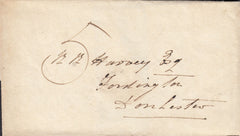 Harvey Esq
Fordington
Dorchester